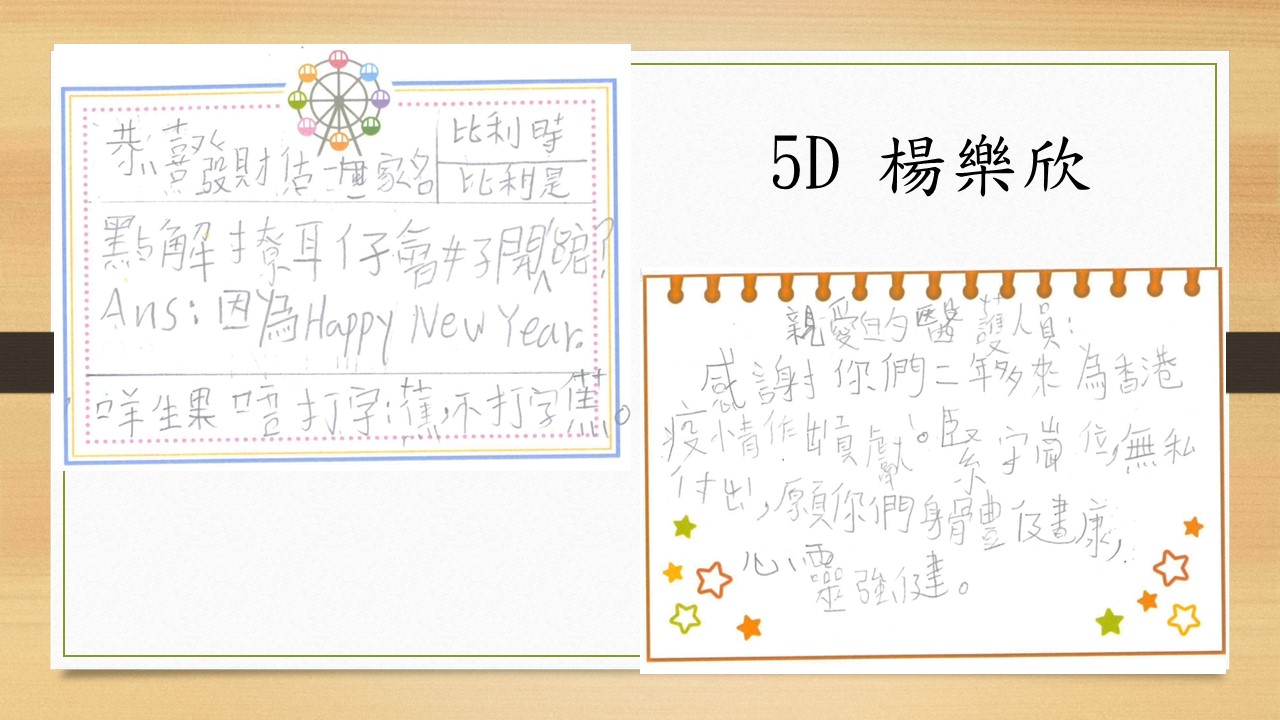 恭喜發財猜一國家名
比利時
比利是
點解撩耳仔會好開心呢?
Ans: 因為Happy New Year.
咩生果唔打字:蕉,不打字蕉。
5D 楊樂欣
親愛的醫護人員:
感謝你們二年多來為香港
疫情作出貢獻。堅守崗位,無私
付出,願你們身體健康,
心靈強健。